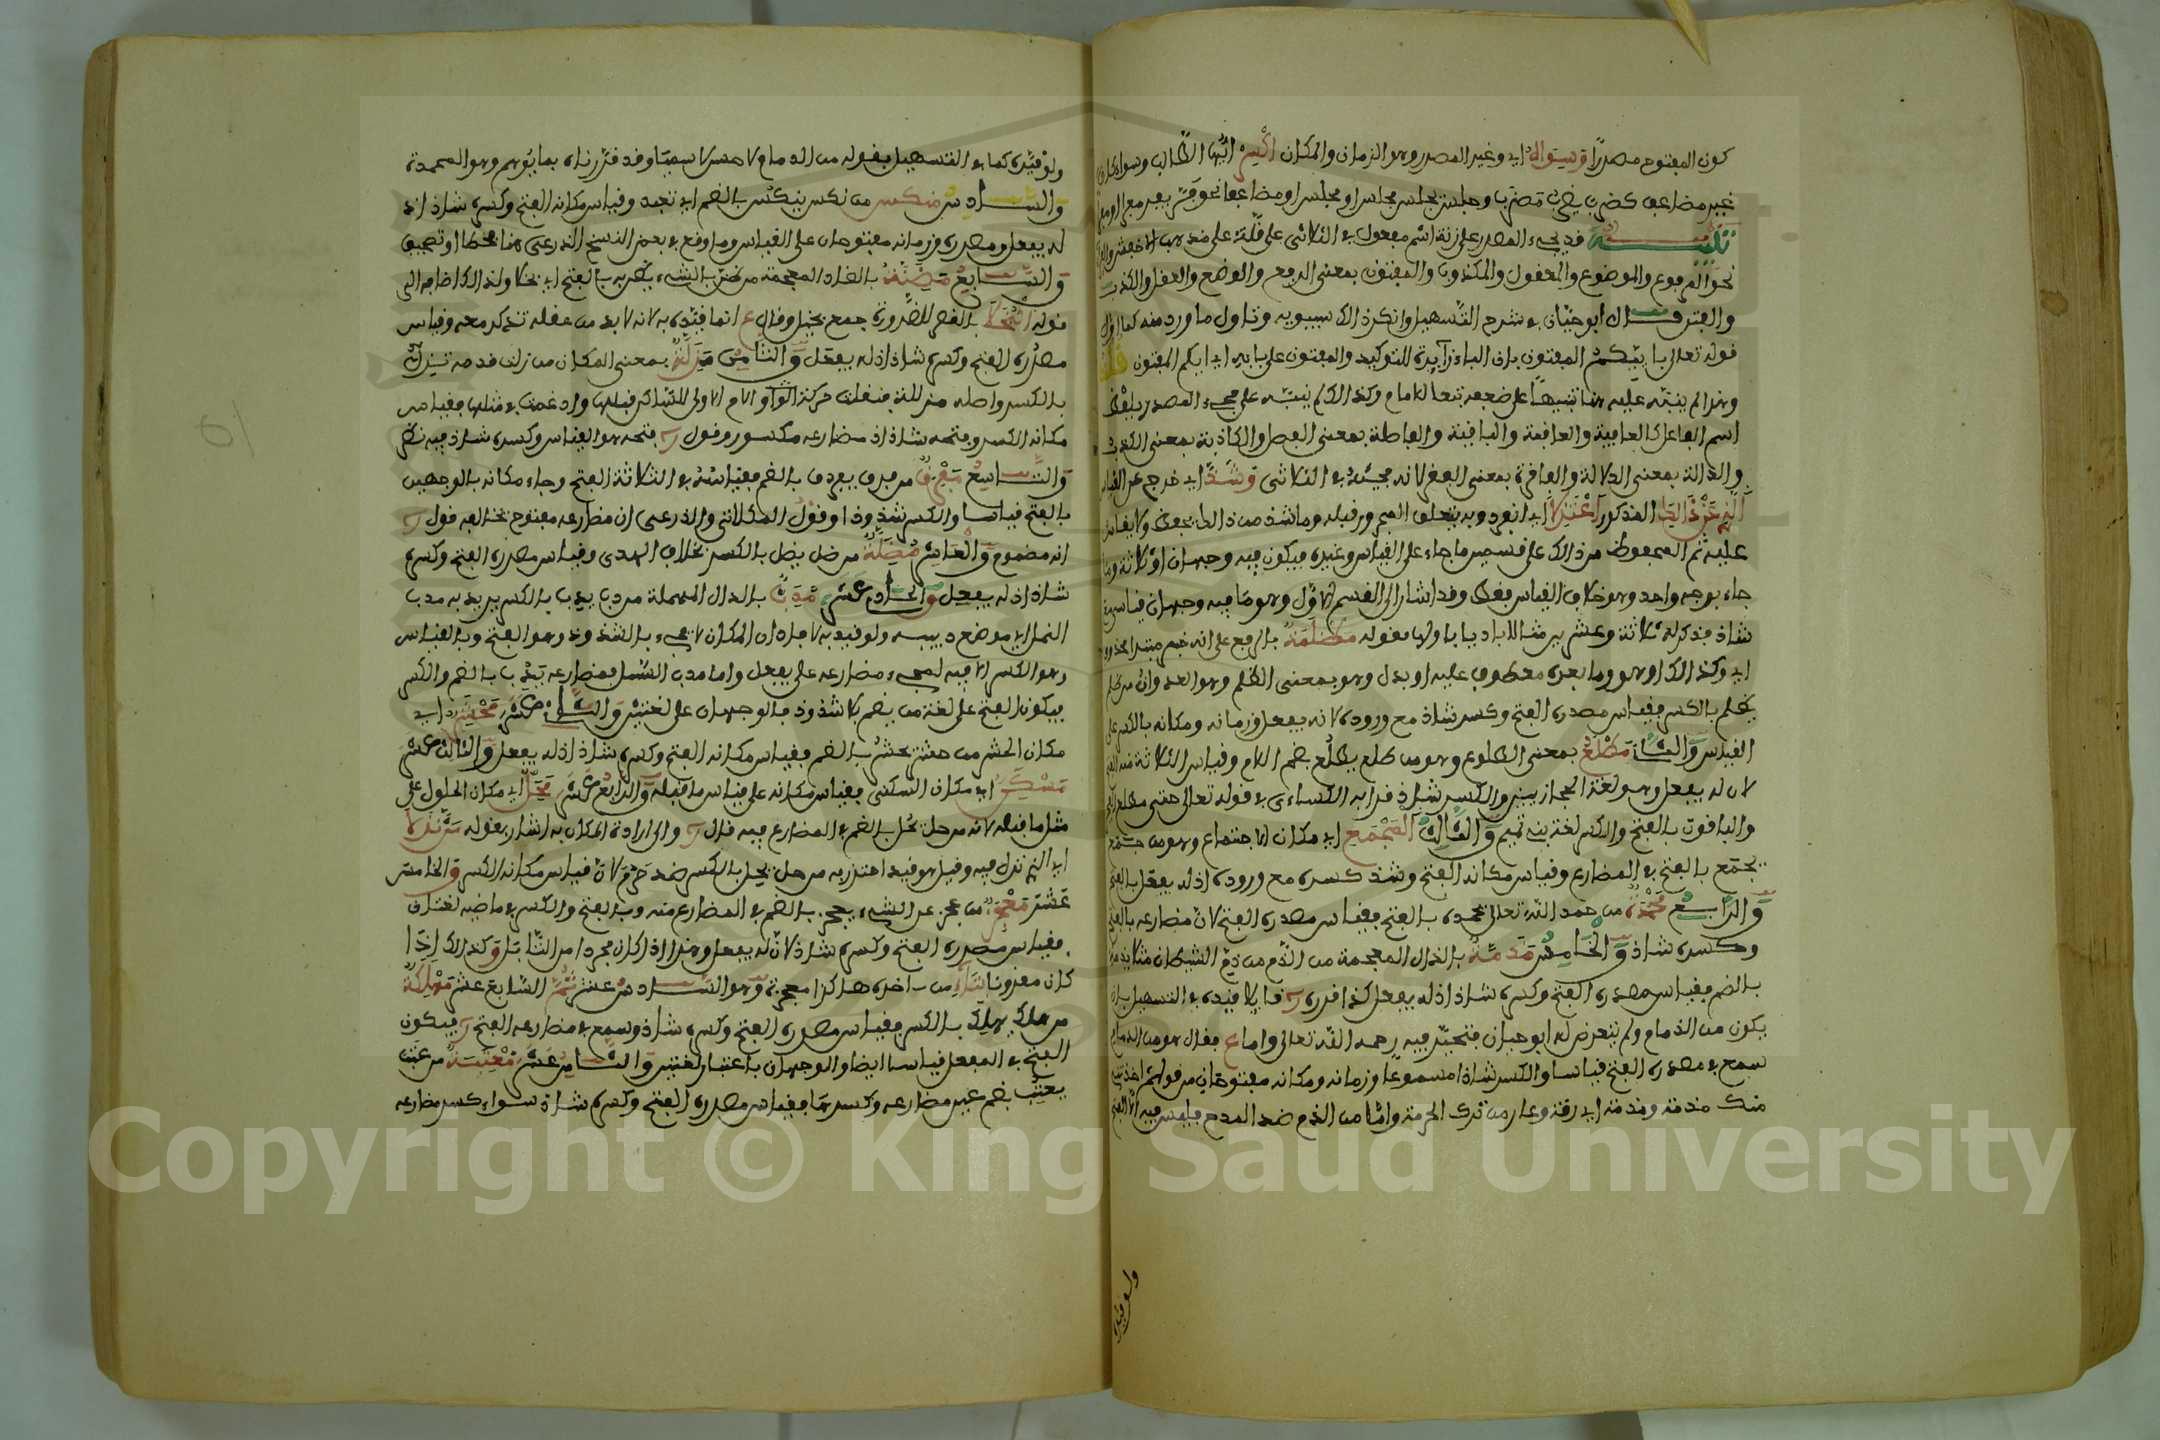 كون المفتوح مصدرا وسواه اي وغير المصدر وهو الزمان والمكان اكسر ايها الطالب وسواء كان
غير مضاعف كضرب يضرب مضربا وجلس يجلس مجلس او مجلسا ومضاعفا نحو فر يفر
تنبيه قد يجيء المصدر على زنة اسم مفعول في الثلاثي على قلة على مذهب الاخفش والفراء
نحو المرفوع والموضوع والمعقول والمكذوب والمفتون بمعنى الرفع والوضع والعقل والكذب
والفتن قال ابو حيان في شرح التسهيل وانكر ذلك سيبويه وتاول ما ورد منه كما اول
قوله تعالى باييكم المفتون بان الباء زايدة للتوكيد والمفتون على بابه اي ايكم المفتون قلت
وهذا لم ينبه عليه هنا تنبيها على ضعفه تبعا للامام وكذلك لم ينبه على مجيء المصدر بلفظ
اسم الفاعل كالعافية والعاقبة والباقية والفاصلة بمعنى الفصل والكاذبة بمعنى الكذب
والدالة بمعنى الدلالة والعاقرة بمعنى العقر لانه مجيئه في الثلاثي وشذ اي خرج عن القياس
الذي عن ذلك المذكور اعتزلا اي انفرد وبه يتعلق المجرور قبله وما شذ من ذلك يحفظ ولا يقاس
عليه ثم المحفوظ من ذلك على قسمين ما جاء على القياس وغيره فيكون فيه وجهان او ثلاثة وما
جاء بوجه واحد وهو خلاف القياس فقط وقد اشار الى القسم الاول وهو ما فيه وجهان قياسي
شاذ فذكر له ثلاثة وعشرين مثالا باديا باولها بقوله مظلمة بالرفع على انه خبر مبتدا محذوف
اي وكذلك او هو وما بعده معطوف عليه او بدل وهو بمعنى الظلم وهو العدوان من ظلم
يظلم بالكسر فقياس مصدره الفتح وكسره شاذ مع وروده لانه يفعل وزمانه ومكانه بالكسر على
القياس والثاني مطلع بمعنى الطلوع وهو من طلع يطلع بضم اللام وقياس الثلاثة منه الفتح
لان له يفعل وهو لغة الحجازيين والكسر شاذ قرا به الكسائي في قوله تعالى حتى مطلع الفجر
والباقون بالفتح والكسر لغة بني تميم والثالث المجمع اي مكان الاجتماع وهو من جمع
يجمع بالفتح في المضارع وقياس مكانه الفتح وشذ كسره مع وروده اذ له يفعل بالفتح
والرابع محمدة من حمد الله تعالى يحمده بالفتح فقياس مصدره الفتح لان مضارعه بالفتح
وكسره شاذ والخامس مذمة بالذال المعجمة من الذم من ذم الشيطان مثلا يذمه
بالضم فقياس مصدره الفتح وكسره شاذ اذ له يفعل كذا قرره قايلا قيده في التسهيل بان
يكون من الذمام ولم يتعرض له ابو حيان فتحير فيه رحمه الله تعالى واما ع فقال هو من الذمام
سمع في مصدره الفتح قياسا والكسر شاذا مسموعا وزمانه ومكانه مفتوحان من قولهم اخذتني
منك مذمة ومذمة اي رقة وعار من ترك الحرمة واما من الذم ضد المدح فليس فيه الا الفتح
ولو قيده
ولو قيده كما في التسهيل بقوله من الذمام لا حسن لا سيما وقد قررناه بما يوهم وهو المحمدة
والسادس منكس من نكس ينكس بالضم اي تعبد وقياس مكانه الفتح وكسره شاذ اذ
له يفعل ومصدره وزمانه مفتوحان على القياس وما وقع في بعض النسخ الذرعى هنا خطا او تصحيف
والسابع مضنة بالضاد المعجمة من ضن بالشيء يضن به بالفتح اي بخلا ولذلك اضافه الى
قوله البخلا بالقصر للضرورة جمع بخيل وقال ع انما قيده به لانه لا بد من عقله تذكر معه وقياس
مصدره الفتح وكسره شاذ اذ له يفعل والثامن مزلة بمعنى المكان من زلت قدمه تزل
بالكسر واصله مزللة فنقلت حركة اللام الاولى للساكن قبلها وادغمت في مثلها فقياس
مكانه الكسر وفتحه شاذ اذ مضارعه مكسور وقول ر فتحه هو القياس وكسره شاذ فيه نظر
والتاسع مفرق من فرق يفرق بالضم فقياسه في الثلاثة الفتح وجاء مكانه بالوجهين
بالفتح قياسا والكسر شذوذا وقول المكلاتي والذرعى ان مضارعه مفتوح يخالف قول ر
انه مضموم والعاشر مضلة من ضل يضل بالكسر بخلاف الهدى وقياس مصدره الفتح وكسره
شاذ اذ له يفعل والحادي عشر مدب بالدال المهملة من دب يدب بالكسر يريد به مدب
النمل اي موضع دبيبه ولو قيد به لافاد ان المكان لا يجيء بالشذوذ وهو الفتح وبالقياس
وهو الكسر الا فيه لمجيء مضارعه على يفعل واما مدب الشمل فمضارعه يدب بالضم والكسر
فيكون الفتح على لغة من يضم لا شذوذ فالوجهان على لغتين والثاني عشر محشر اي
مكان الحشر من حشر يحشر بالضم فقياس مكانه الفتح وكسره شاذ اذ له يفعل والثالث عشر
مسكن اي مكان السكنى فقياس مكانه على قياس ما قبله والرابع عشر محل اي مكان الحلول على
مثل ما قبله لانه من حل يحل بالضم في المضارع فيه قال ر والى ارادة المكان به اشار بقوله من نزلا
اي الذي نزل فيه وقيل هو قيد احترز به من حل يحل بالكسر ضد حرم لان قياس مكانه الكسر والخامس
عشر معجز من عجز عن الشيء يعجز بالضم في المضارع منه وبالفتح والكسر في ماضيه لغتان
فقياس مصدره الفتح وكسره شاذ لان له يفعل وهذا اذا كان مجردا من التاء بل وكذلك اذا
كان مقرونا بتاء من اخره هكذا معجزة وهو السادس عشر ثم السابع عشر مهلكة
من هلك يهلك بالكسر فقياس مصدره الفتح وكسره شاذ وسمع في مضارعه الفتح ر فيكون
الفتح في المفعل قياسا ايضا والوجهان باعتبار لغتين والثامن عشر معتبة من عتب
يعتب بضم عين مضارعه وكسرها فقياس مصدره الفتح وكسره شاذ سواء كسر مضارعه
Copyright © King Saud University